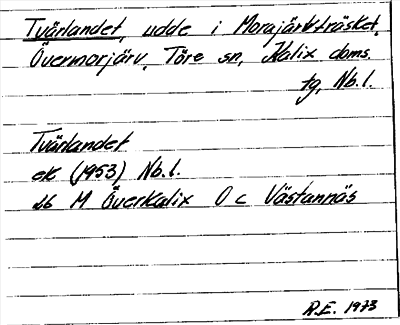 Tvärlandet, udde i Morajärvträsket,
Övermorjärv, Töre sn, Kalix doms.
tg, Nb. l.
Tvärlandet
ek (1953) Nb. l.
26 M Överkalix O c Västannäs
R.E. 1973